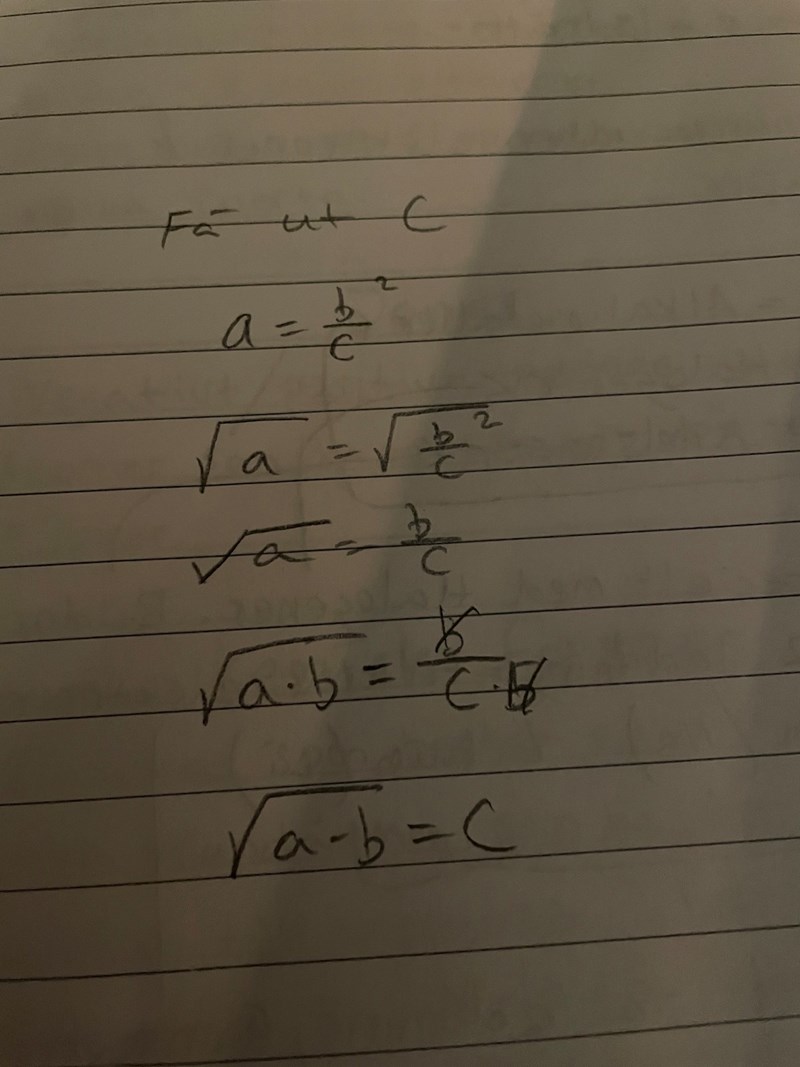 Få ut C
a = b/c ²
√a = √b/c ²
√a = b/c
√a·b = b/c·b
√a-b = C